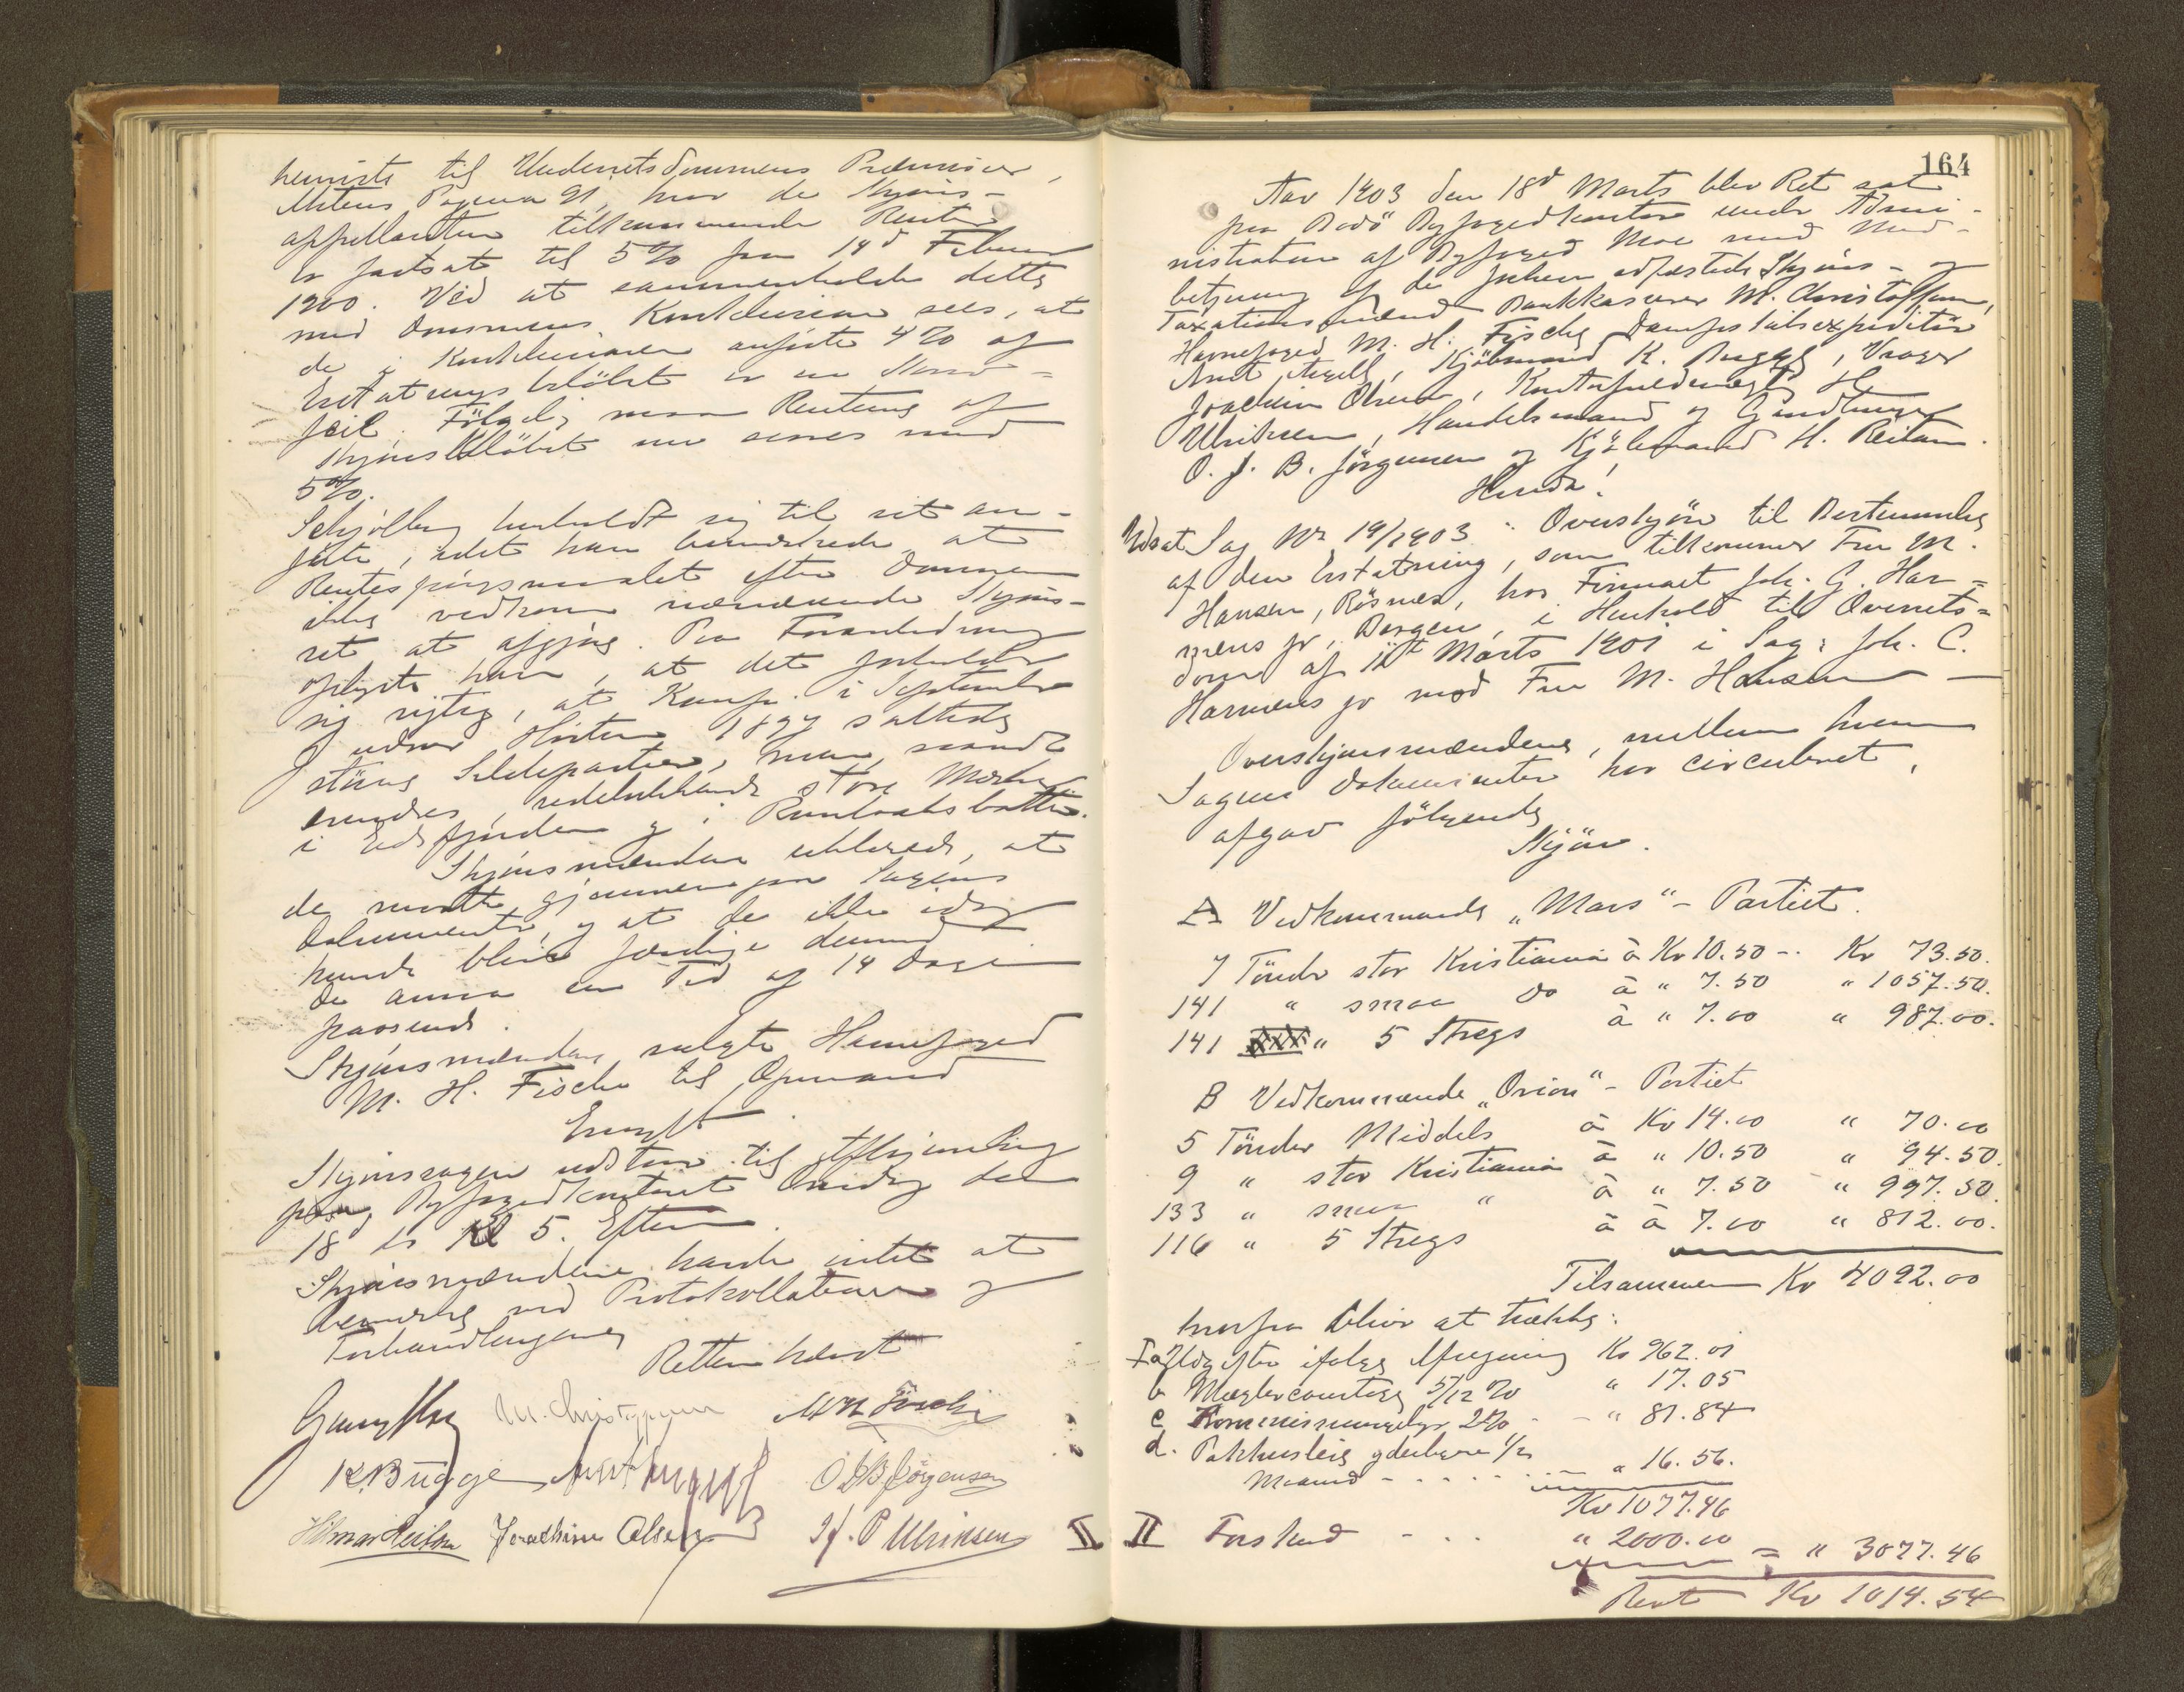 henviste til Underretsdommens Præmisser,
Aktens Pagina 91, hvor de Skjøns-
appellanten tilkommende Renter
er fastsat til 5% fra 14d Februar
1900. Ved at sammenholde dette
med Dommens Konklusion sees, at
de i Konklusionen anførte 4% af
Erstatningsbeløbet er en
feil. Følgelig maa Renterne af
Skjønsbeløbet nu sættes med
5%.
Schjølberg henholdt sig til sit an-
førte, idet han bemærkede at
Rentespørgsmaalet efter Dommen
ikke vedkom nærværende Skjøns-
ret at afgjøre. Paa Foranledning
oplyste han, at det forholder
sig rigtig, at Komp. i September
udover Høsten 1897 saltede
større Sildepartier, man saavidt
erindres, vedelukkende store Merker
i Eidsfjorden og i Rombaksbotten.
Skjønsmændene erklærede, at
de maatte gjennemgaa Sagens
Dokumenter, og at de ikke idag
kunde blive færdige dermed
De ansaa en Tid af 14 Dage
passende.
Skjønsmændene valgte Havnefoged
M. H. Fischer til Opmand
Eragt.
Skjønssagen udstaar til Afhjemling
paa Byfogedkontoret Onsdag den
18 ds Kl 5. Efterm.
Skjønsmændene havde intet at
bemærke ved Protokollationen og
Forhandlingerne
Retten hævet
M. Christoffersen M H Fischer
K. Bugge Arnt Angell O J B Jörgensen
Hilmar Reitan Joachim Olsen H. P Ulriksen II
164
Aar 1903 den 18d Marts blev Ret sat
paa Bodö Byfogedkontor under Admi-
nistration af Byfoged Moe med Med-
betjening af de forhen edfæstede Skjøns- og
Taxationsmænd Bankkasserer M. Christoffersen,
Havnefoged M. H. Fischer, Dampskibsexpeditør
Arnt Angell, Kjöbmand K. Bugge, Vrager
Joachim Olsen, Kontorfuldmægtig H.
Ulriksen, Handelsmand og Gaardbruger
O. J. B. Jörgensen og Kjöbmand H. Reitan.
Hvorda!
Udsat Sag No 19/1903: Overskjön til Bestemmelse
af den Erstatning, som tilkommer Fru M.
Hansen, Rösnæs, hos Firmaet Joh. C. Har-
mens jr, Bergen, i Henhold til Overrets-
dom af 11t Marts 1901 i Sag: Joh. C.
Harmens jr mod Fru M. Hansen —
Overskjønsmændene, mellem hvem
Sagens Dokumenter har circuleret,
afgav følgende
Skjön.
A Vedkommende „Mars“ - Partiet.
7 Tönder stor Kristiania à Kr 10.50 -. Kr 73.50.
141 " smaa do à " 7.50 " 1057.50.
141 " 5 Stregs à " 7.00 " 987.00.
B Vedkommende „Orion“ - Partiet
5 Tönder Middels à Kr 14.00 " 70.00
9 " stor Kristiania à " 10.50 " 94.50.
133 " smaa " à " 7.50 " 997.50.
116 " 5 Stregs à à 7.00 " 812.00.
Tilsammen Kr 4092.00
hvorfra bliver at trække:
I a Udgifter ifølge Afregning Kr 962.01
b Mæglercourtage 5/12 % " 17.05
c Kommissionsgebyr 2% - - " 81.84
d. Pakhusleie yderligere 1/2
Maaned - - - - - - " 16.56.
Kr 1077.46
II Forskud - - - " 2000.00 = " 3077.46
Rest Kr 1014.54